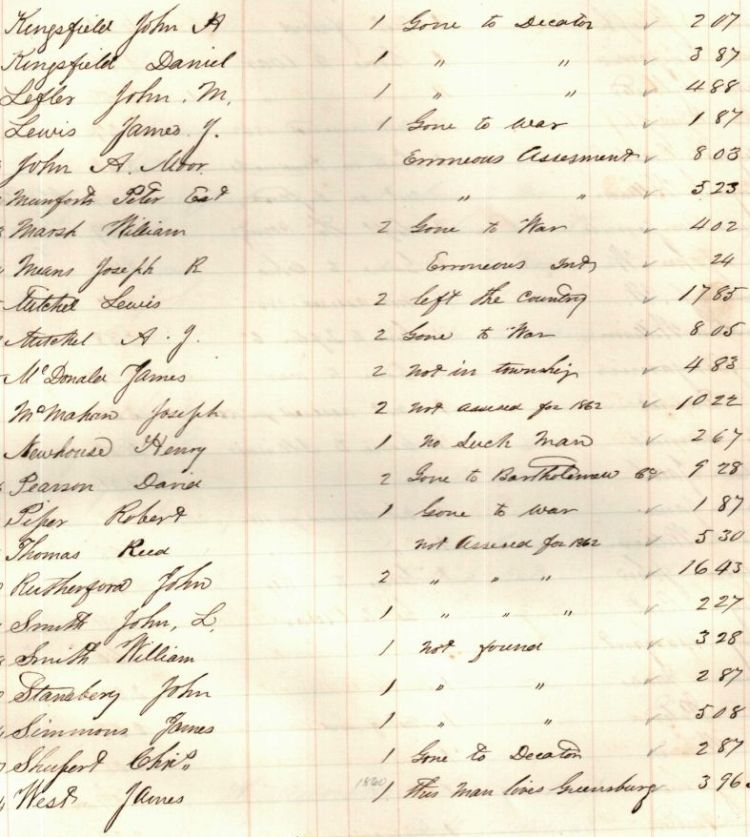 Kingsfield John A 1 Gone to Decator ✓ 2 07
Kingsfield Daniel 1 " " ✓ 3 87
Lefler John. M. 1 " " ✓ 4 88
Lewis James. J. 1 Gone to War ✓ 1 87
John A. Moor Erroneous Assesment ✓ 8 03
Munfort Peter Est " " ✓ 5 23
Marsh William 2 Gone to War ✓ 4 02
Means Joseph R Erroneous Ind ✓ 24
Mitchel Lewis 2 left the Country ✓ 17 85
Mitchel A. J. 2 Gone to War ✓ 8 05
McDonald James 2 not in township ✓ 4 83
McMahan Joseph 2 not Assesed for 1862 ✓ 10 22
Newhouse Henry 1 no Such Man ✓ 2 67
Pearson David 2 Gone to Bartholemew Co ✓ 9 28
Piper Robert 1 Gone to War ✓ 1 87
Thomas Reed not Assesed for 1862 ✓ 5 30
Rutherford John 2 " " " ✓ 16 43
Smith John, L. 1 " " " ✓ 2 27
Smith William 1 not found ✓ 3 28
Stansbery John 1 " " ✓ 2 87
Simmons James 1 " " ✓ 5 08
Shufert Chris 1 Gone to Decator ✓ 2 87
West James 1860 1 this Man lives Greensburg ✓ 3 96